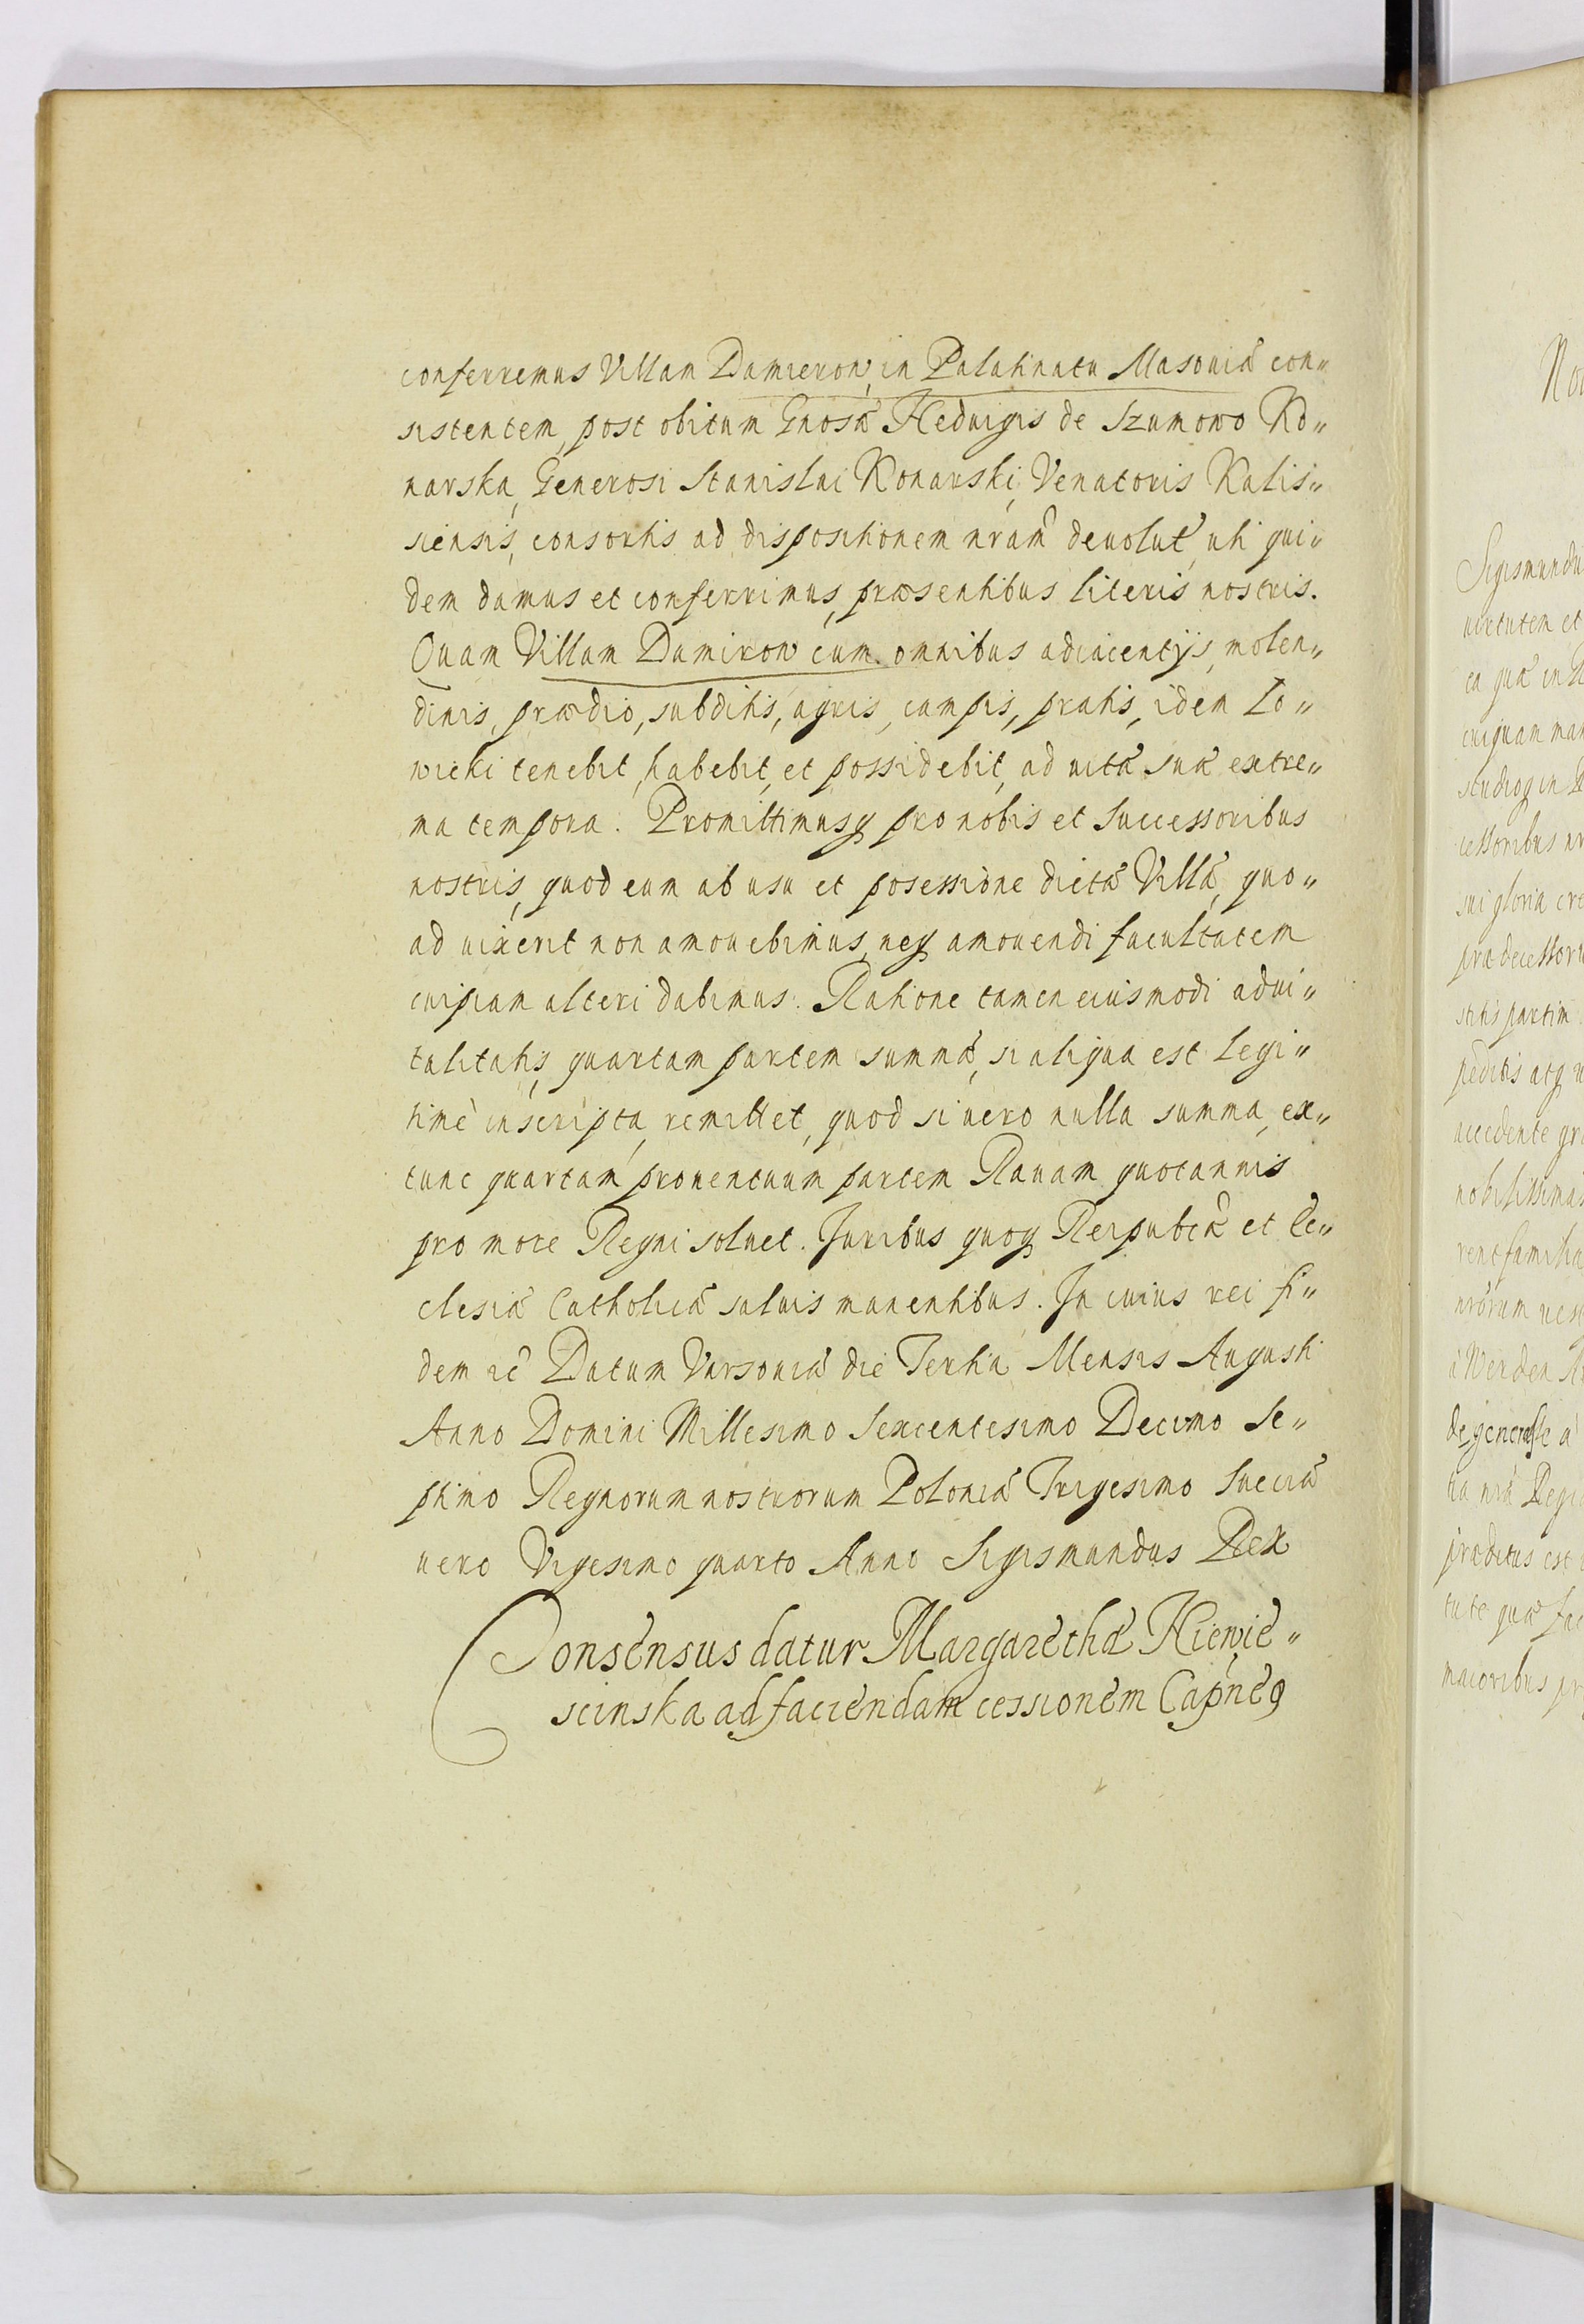 conferremus Villam Damieron, in Palatinatu Masoviæ con„
sistentem, post obitum Gnosæ Hedvigis de Szumowo Ko„
narska, Generosi Stanislai Konarski, Venatoris Kalis„
siensis, consortis ad dispositionem nram devolut, uti qui„
dem damus et conferrimus, præsentibus literis nostris.
Quam Villam Damiron cum omnibus adiacentijs, molen„
dinis, prædio, subditis, agris, campis, pratis, idem Lo„
wicki tenebit, habebit, et possidebit, ad vitæ suæ extre„
ma tempora. Promittimusq pro nobis et Successoribus
nostris, quod eum ab usu et posessione dictæ Villæ, quo„
ad vixerit non amovebimus, neq amovendi facultatem
cuipiam alteri dabimus. Ratione tamen eiusmodi advi„
talitatis, quartam partem summæ, si aliqua est legi„
timè inscripta, remittet, quod si vero nulla summa, ex„
tunc quartam proventuum partem Ravam quotannis
pro more Regni solvet. Juribus quoq Reipubcæ et Ec„
clesiæ Catholicæ salvis manentibus. In cuius rei fi„
dem ec Datum Varsoviæ die Tertia Mensis Augusti
Anno Domini Millesimo Sexcentesimo Decimo Se„
ptimo Regnorum nostrorum Poloniæ Trigesimo Sueciæ
vero Vigesimo quarto Anno Sigismundus Rex
Consensus datur Margarethæ Kiewie„
scinska ad faciendam cessionem Capneq
Sigismundu
virtutem et
ea quæ in
cuiquam man
studioq in
cessoribus nr
sui gloria cre
prædecessor
stitis partim
peditis atq
accedente gr
nobilissimas
rent familia
nrorum
à Werden
degenerasse a
tia nra Regi
præditus est
tute quæ fac
maioribus pr